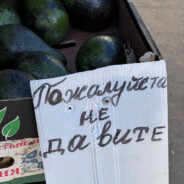 Пожалуйста
не
давите